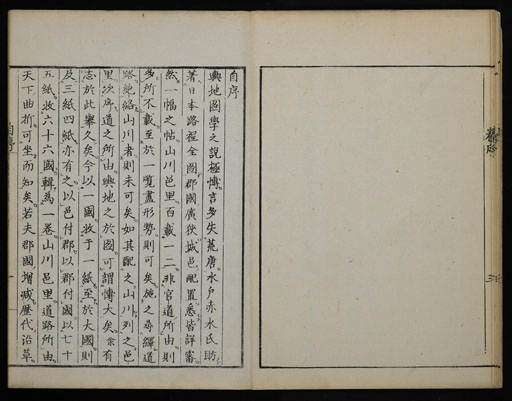 自序
輿地圖學之說極博言多失荒唐水戶赤水氏昉
著日本路程全圖郡國廣狹城邑配置悉皆詳審
然一幅之帖山川邑里百載一二非官道所由則
多所不載至於一覽盡形勢則可矣施之尋繹道
路絶繞山川者則未可矣如其配之山川列之邑
里次序道之所由輿地之於圖可謂博大矣余有
志於此舉久矣今以一國收于一紙至於大國則
及三紙四紙亦有之以邑付郡以郡付國以七十
五紙收六十六國輯為一卷山川邑里道路所由
天下曲折可坐而知矣若夫郡國增減歷代沿革
自序